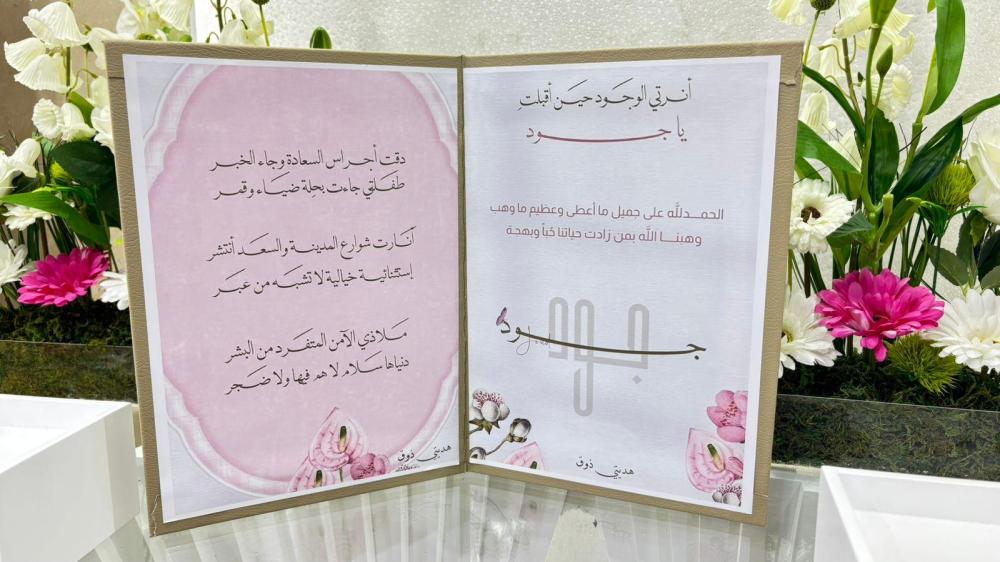 أنرتي الوجود حين أقبلتِ
يا جود
الحمدلله على جميل ما أعطى وعظيم ما وهب
وهبنا الله بمن زادت حياتنا حُباً وبهجة
جود
هديتي ذوق
دقت أجراس السعادة وجاء الخبر
طفلتي جاءت بحلة ضياء وقمر
أنارت شوارع المدينة والسعد أنتشر
إستثنائية خيالية لا تشبه من عبر
ملاذي الآمن المتفرد من البشر
دنياها سلام لا هم فيها ولا ضجر
هديتي ذوق